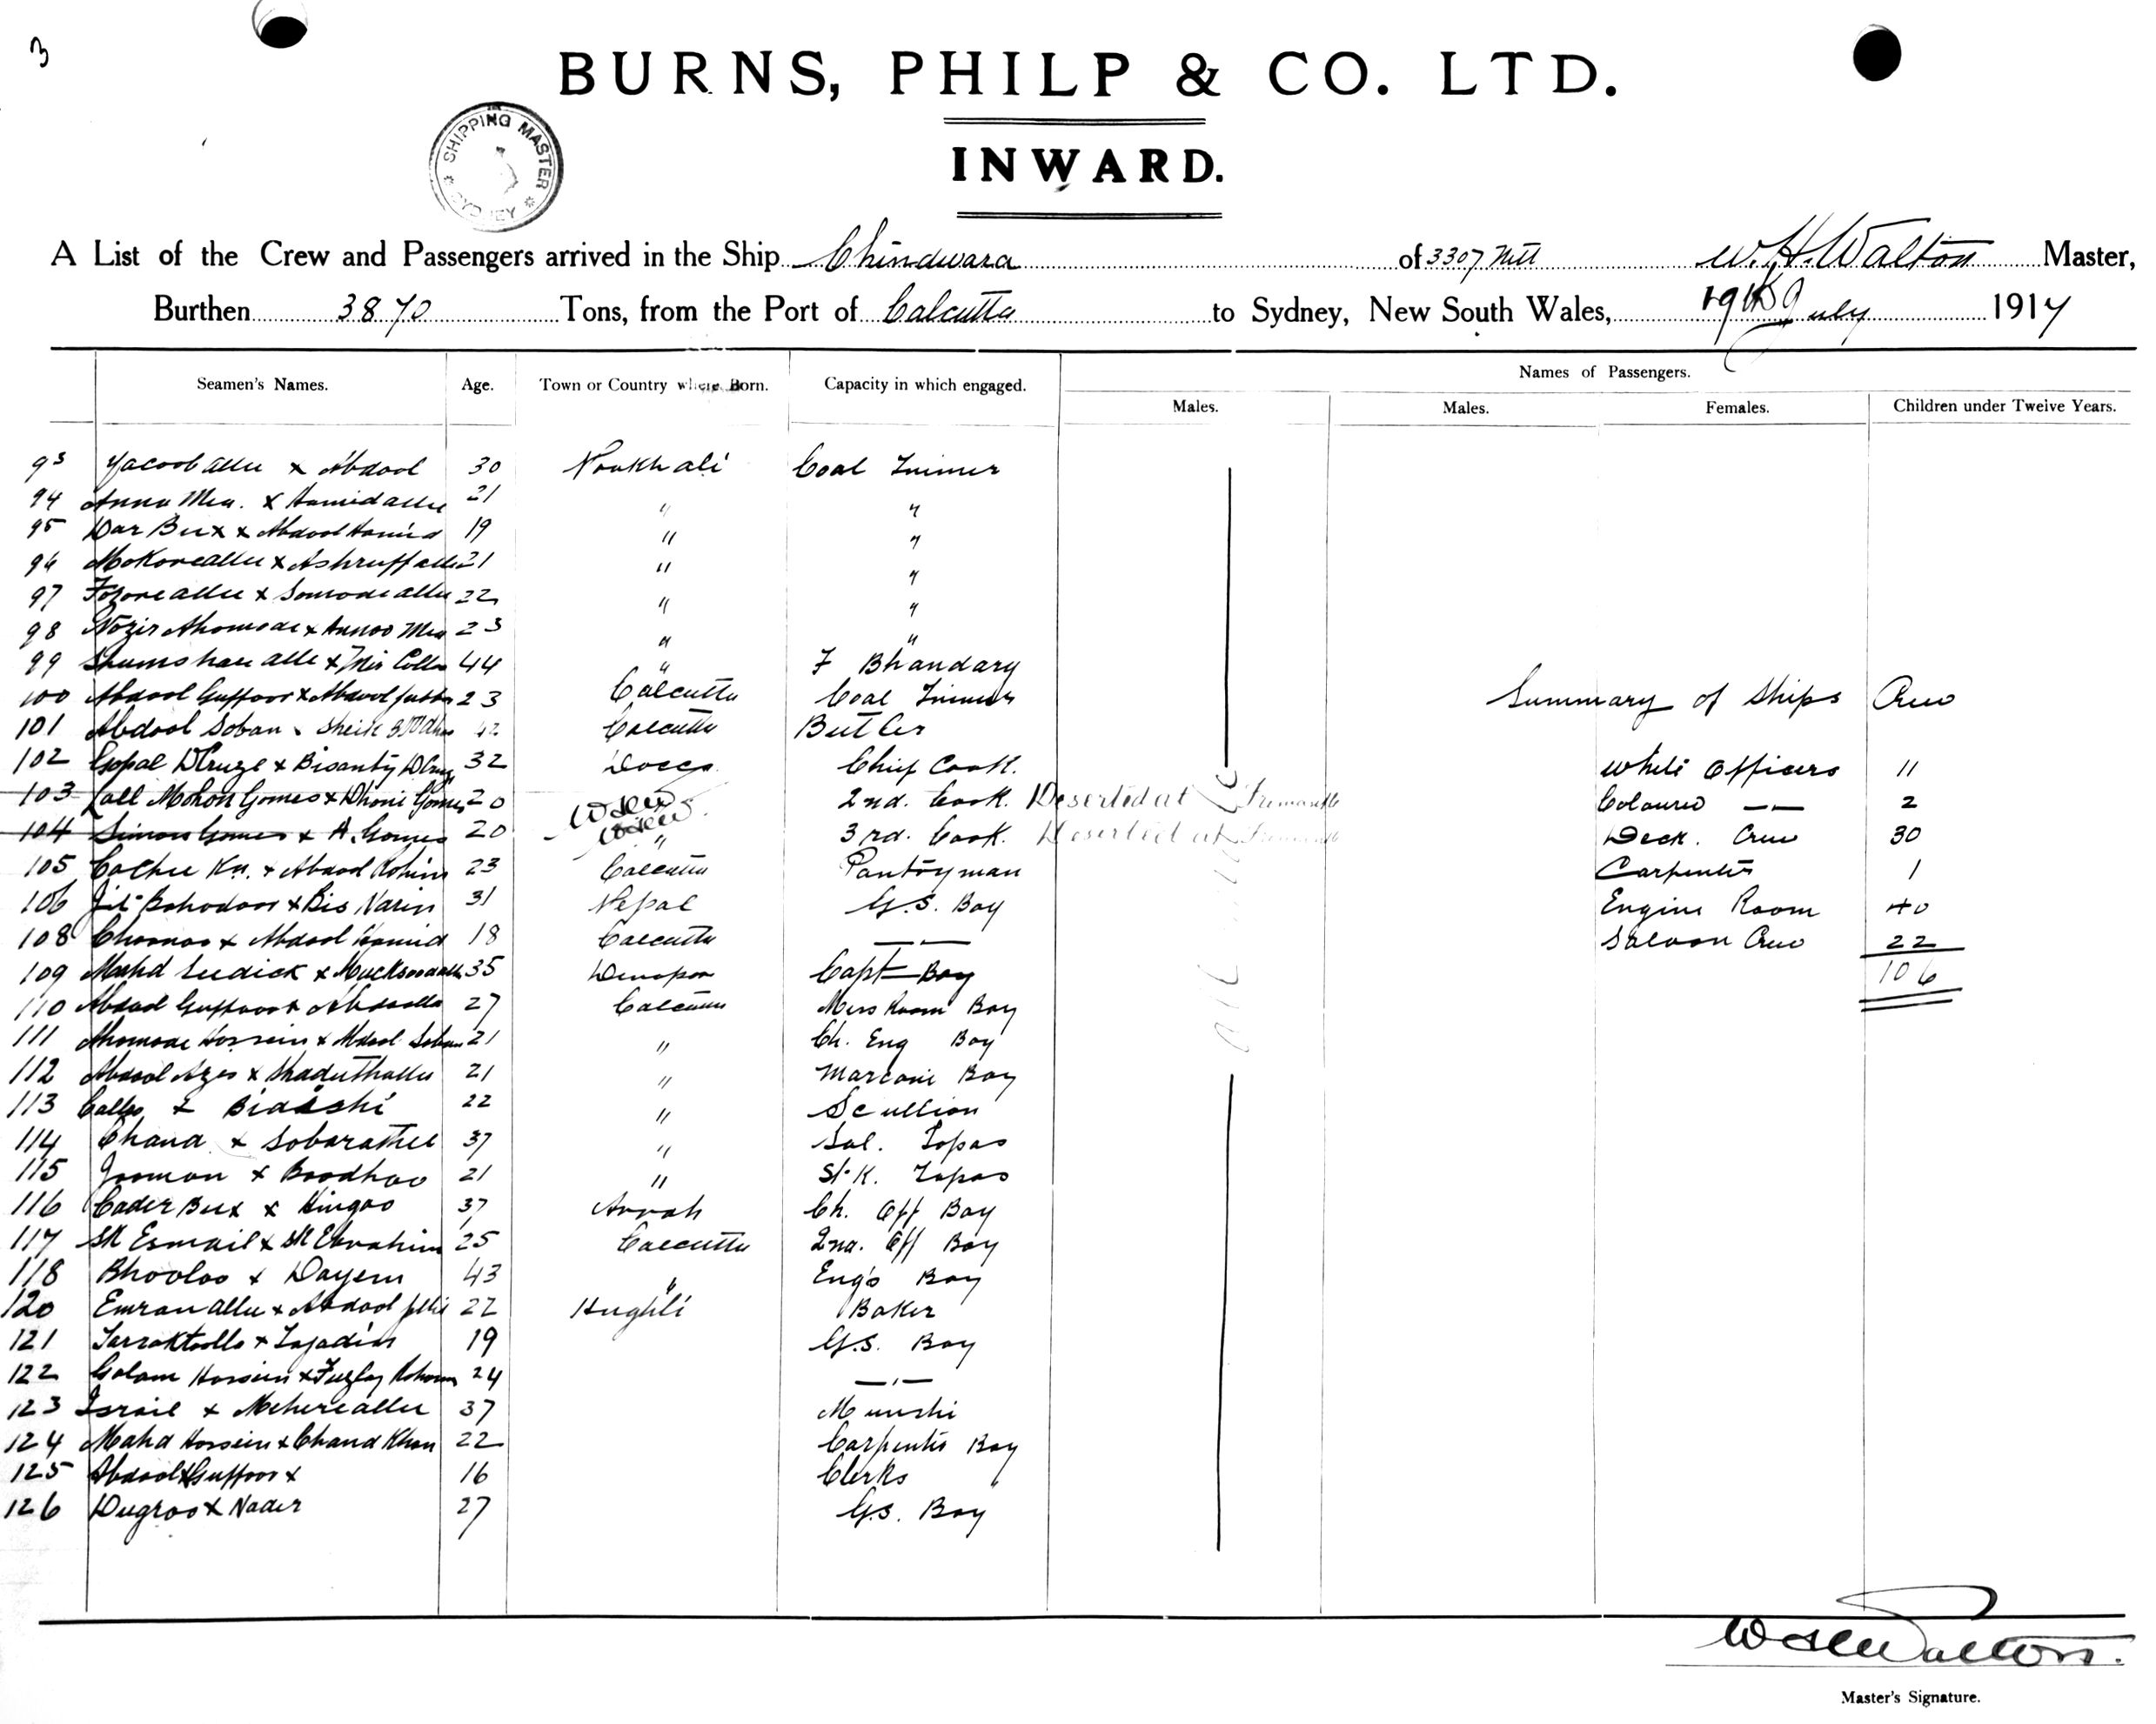 3
BURNS, PHILP & CO. LTD.
SHIPPING MASTER
SYDNEY
INWARD.
A List of the Crew and Passengers arrived in the Ship Chindwara of 3307 Nett W. H. Walton Master,
Burthen 3870 Tons, from the Port of Calcutta to Sydney, New South Wales, 19th July 1917
Names of Passengers.
Seamen's Names. Age. Town or Country where Born. Capacity in which engaged. Males. Males. Females. Children under Twelve Years.
93 Yacoob Allee x Abdool 30 Noakhali Coal Trimmer
94 Annu Mea. x Hamidallee 21 " "
95 Dar Bux x Abdool Hamid 19 " "
96 Mokoreallee x Ashruffallee 21 " "
97 Fozoreallee x 22 " "
98 Nozir Ahomode x Annoo Mea 23 " "
99 44 " F Bhandary
100 Abdool Guffoor x Abdool 23 Calcutta Coal Trimmer
101 Abdool Soban x Sheik 42 Calcutta Butler
102 Gopal DCruze x Bisanty DCruz 32 Dacca Chief Cook.
103 Lall Mohon Gomes x Dhoni Gomes 20 2nd. Cook. Deserted at Fremantle
104 Simon Gomes x A. Gomes 20 " 3rd. Cook. Deserted at Fremantle
105 x Abdool Rohim 23 Calcutta Pantryman
106 Jit Bohodoor x Bis Narin 31 Nepal G.S. Boy
108 Choonoo x Abdool Hamid 18 Calcutta —"—
109 Mahd Seedick x 35 Dinapor Capt Boy
110 Abdool Guffoor x Abdoolla 27 Calcutta Mess Room Boy
111 Ahomode Hossein x Abdool Soban 21 " Ch. Eng Boy
112 Abdool Azes x 21 " Marconi Boy
113 x 22 " Scullion
114 Chand x Sobaratee 37 " Sal. Topas
115 Jooman x Boodhoo 21 " St. K. Topas
116 Cader Bux x Hingoo 37 Arrah Ch. Off Boy
117 SK Esmail x SK Ebrahim 25 Calcutta 2nd. Off Boy
118 Bhooloo x Dayem 43 " Engs Boy
120 Emran Allee x Abdool 22 Hughli Baker
121 x 19 G.S. Boy
122 Golam Hossein x Fuzlay Rohoman 24 —"—
123 Israil x Meherallee 37 Munshi
124 Mahd Hossein x Chand Khan 22 Carpenter's Boy
125 Abdool Guffoor x 16 Clerks "
126 Dugroo x Nader 27 G.S. Boy
Summary of Ships Crew
White Officers 11
Coloured —"— 2
Deck. Crew 30
Carpenter 1
Engine Room 40
Saloon Crew 22
106
W H Walton.
Master's Signature.